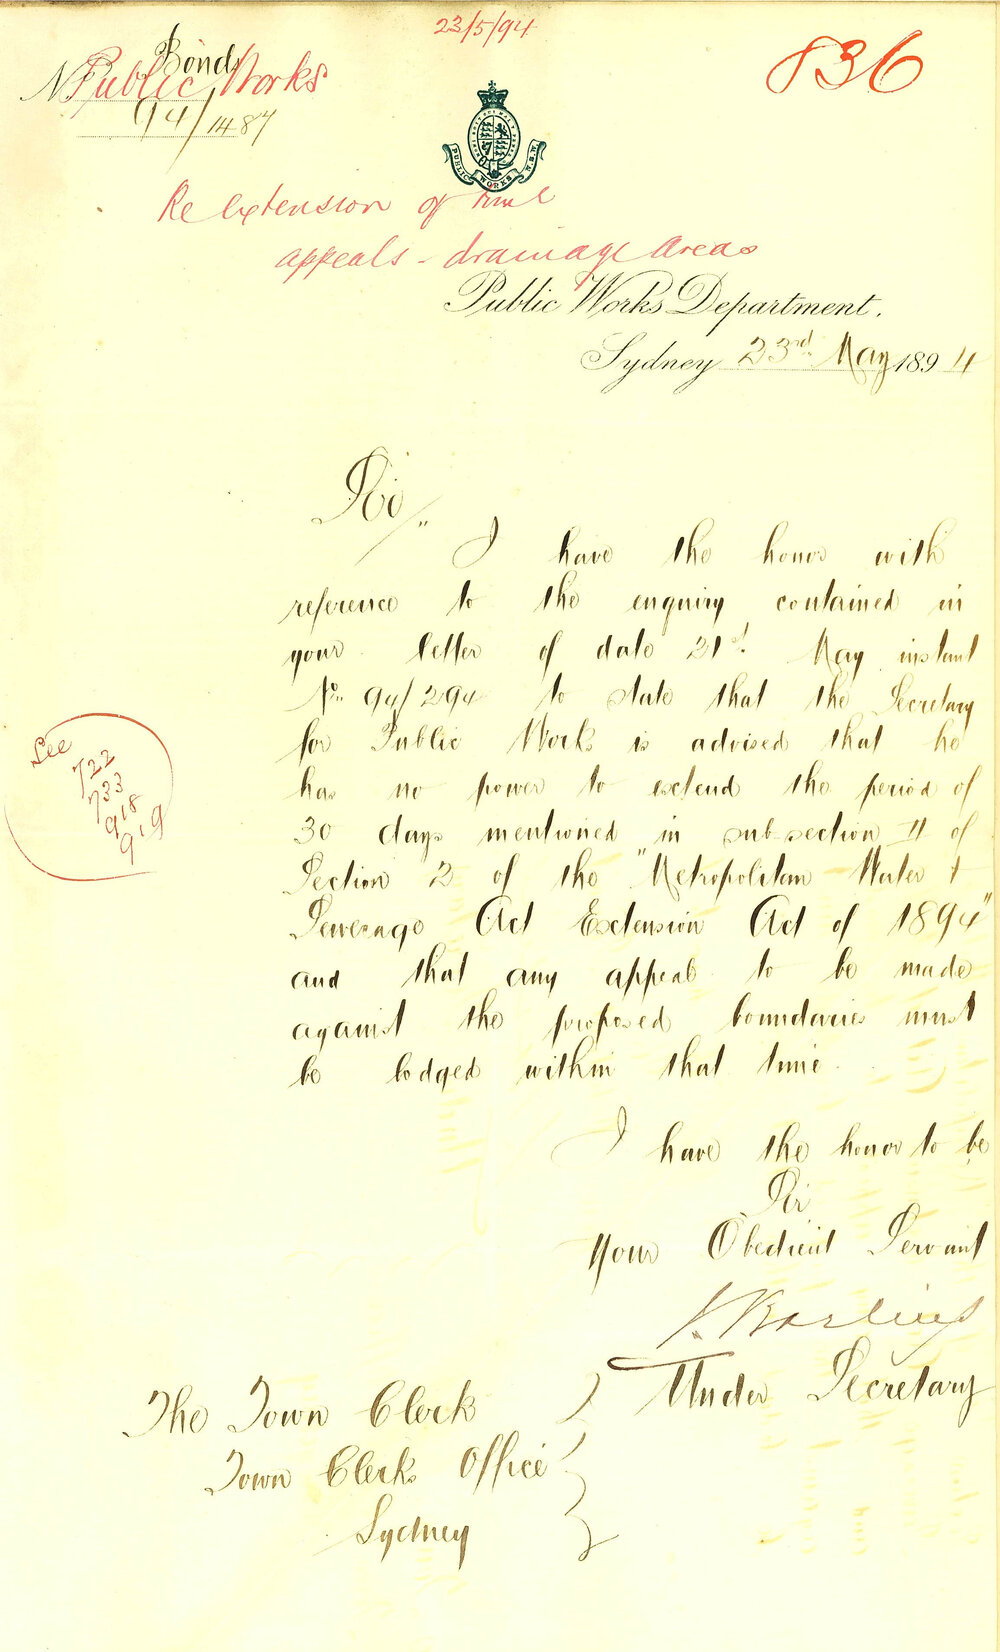 23/5/94
836
Bonds
Public Works
No 94/1487
PUBLIC WORKS N.S.W.
Re Extension of time
appeals - drainage areas
Public Works Department.
Sydney 23rd May 1894
Sir,
I have the honor with
reference to the enquiry contained in
your letter of date 21st May instant
No. 94/294 to state that the Secretary
for Public Works is advised that he
has no power to extend the period of
30 days mentioned in sub-section II of
Section 2 of the "Metropolitan Water &
Sewerage Act Extension Act of 1894"
and that any appeal to be made
against the proposed boundaries must
be lodged within that time.
See
722
733
918
919
I have the honor to be
Sir
Your Obedient Servant
J. Barling
Under Secretary
The Town Clerk
Town Clerks Office
Sydney